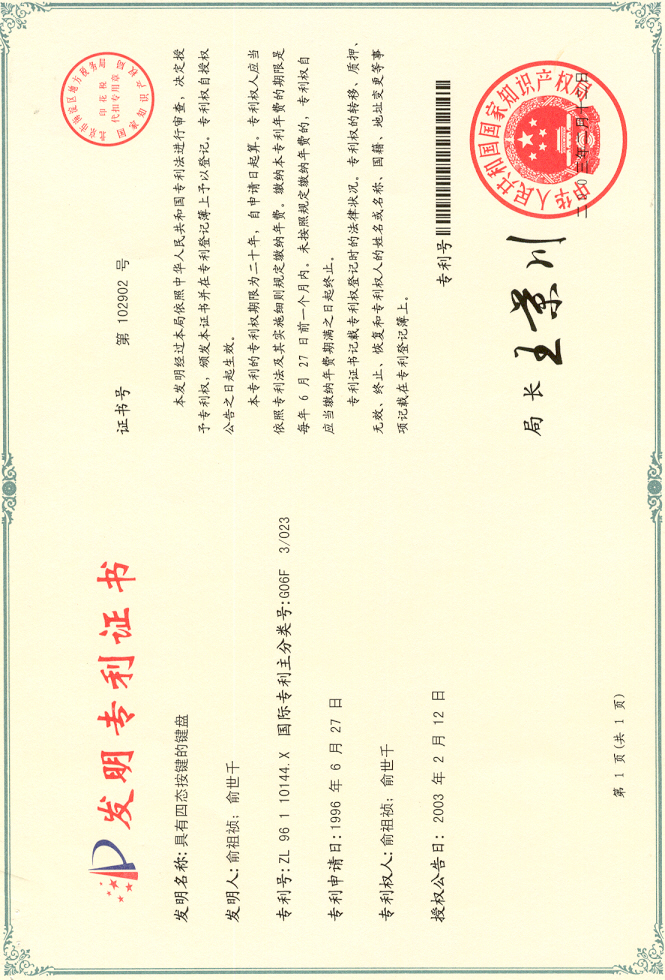 发明专利证书
发明名称:具有四态按键的键盘
发明人:俞祖祯;俞世千
专利号:ZL 96 1 10144.X 国际专利主分类号:G06F 3/023
专利申请日:1996 年 6 月 27 日
专利权人:俞祖祯;俞世千
授权公告日: 2003 年 2 月 12 日
证书号 第 102902 号
本发明经过本局依照中华人民共和国专利法进行审查,决定授
予专利权,颁发本证书并在专利登记簿上予以登记。专利权自授权
公告之日起生效。
本专利的专利权期限为二十年,自申请日起算。专利权人应当
依照专利法及其实施细则规定缴纳年费。缴纳本专利年费的期限是
每年 6 月 27 日前一个月内。未按照规定缴纳年费的,专利权自
应当缴纳年费期满之日起终止。
专利证书记载专利权登记时的法律状况。专利权的转移、质押、
无效、终止、恢复和专利权人的姓名或名称、国籍、地址变更等事
项记载在专利登记簿上。
专利号
局长 王景川
中华人民共和国国家知识产权局
北京市海淀区地方税务局
国家知识产权局
印花税
代扣专用章
第 1 页(共 1 页)